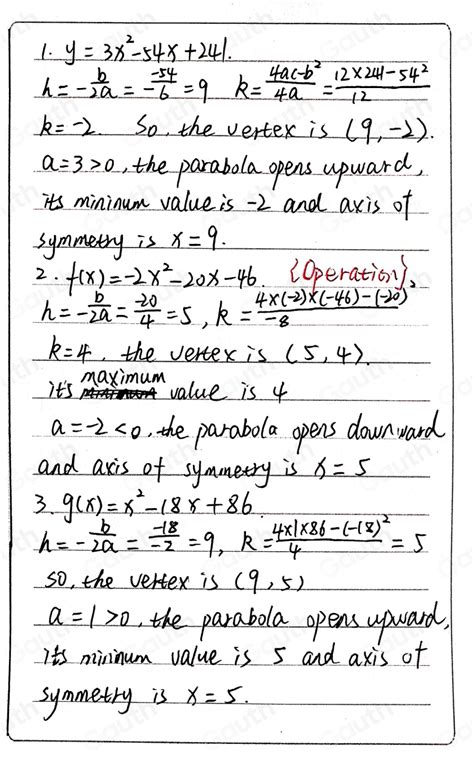 1. y = 3x²-54x+241.
h = -b/2a = -54/-6 = 9 k = 4ac-b²/4a = 12×241-54²/12
k = -2. So, the vertex is (9,-2).
a=3>0, the parabola opens upward,
its mininum value is -2 and axis of
symmetry is x=9.
2. f(x) = -2x²-20x-46. {Operation}
h = -b/2a = -20/4 = 5, k = 4×(-2)×(-46)-(-20)²/-8
k=4, the vertex is (5,4).
maximum
its value is 4
a=-2<0, the parabola opens downward
and axis of symmetry is x=5
3. g(x) = x²-18x+86
h = -b/2a = -18/-2 = 9, k = 4×1×86-(-18)²/4 = 5
so, the vertex is (9,5)
a=1>0, the parabola opens upward,
its mininum value is 5 and axis of
symmetry is x=5.